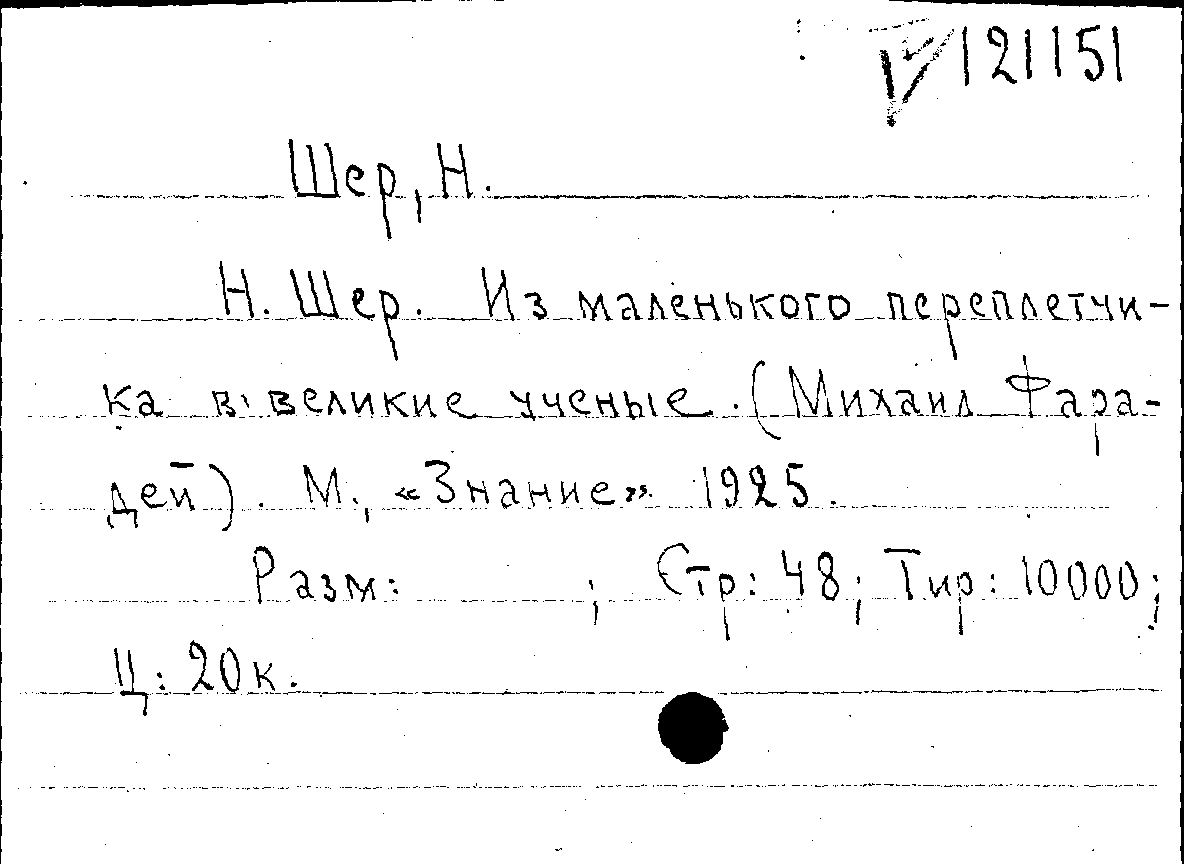 V 121151
Шер, Н.
Н. Шер. Из маленького переплетчи-
ка в великие ученые. (Михаил Фара-
дей). М., «Знание» 1925.
Разм: ; Стр: 48; Тир: 10000;
Ц: 20к.